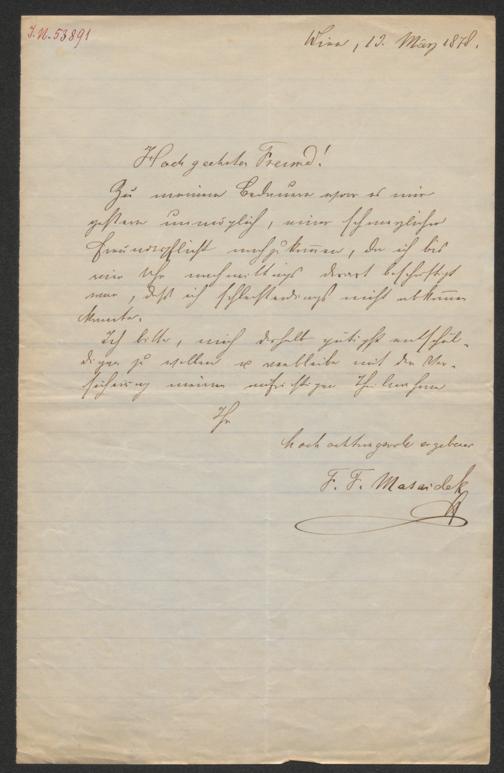 J.N. 53891
Wien, 13. März 1878.
Hochgeehrter Freund!
Zu meinem Bedauern war es mir
gestern unmöglich, einer schmerzlichen
Freundespflicht nachzukommen, da ich bis
vier Uhr nachmittags derart beschäftigt
war, daß ich schlechterdings nicht abkommen
konnte.
Ich bitte, mich deshalb gütigst entschul-
digen zu wollen u verbleibe mit der Ver-
sicherung meiner aufrichtigen Theilnahme
Ihr
hochachtungsvoll ergebener
F. F. Masaidek